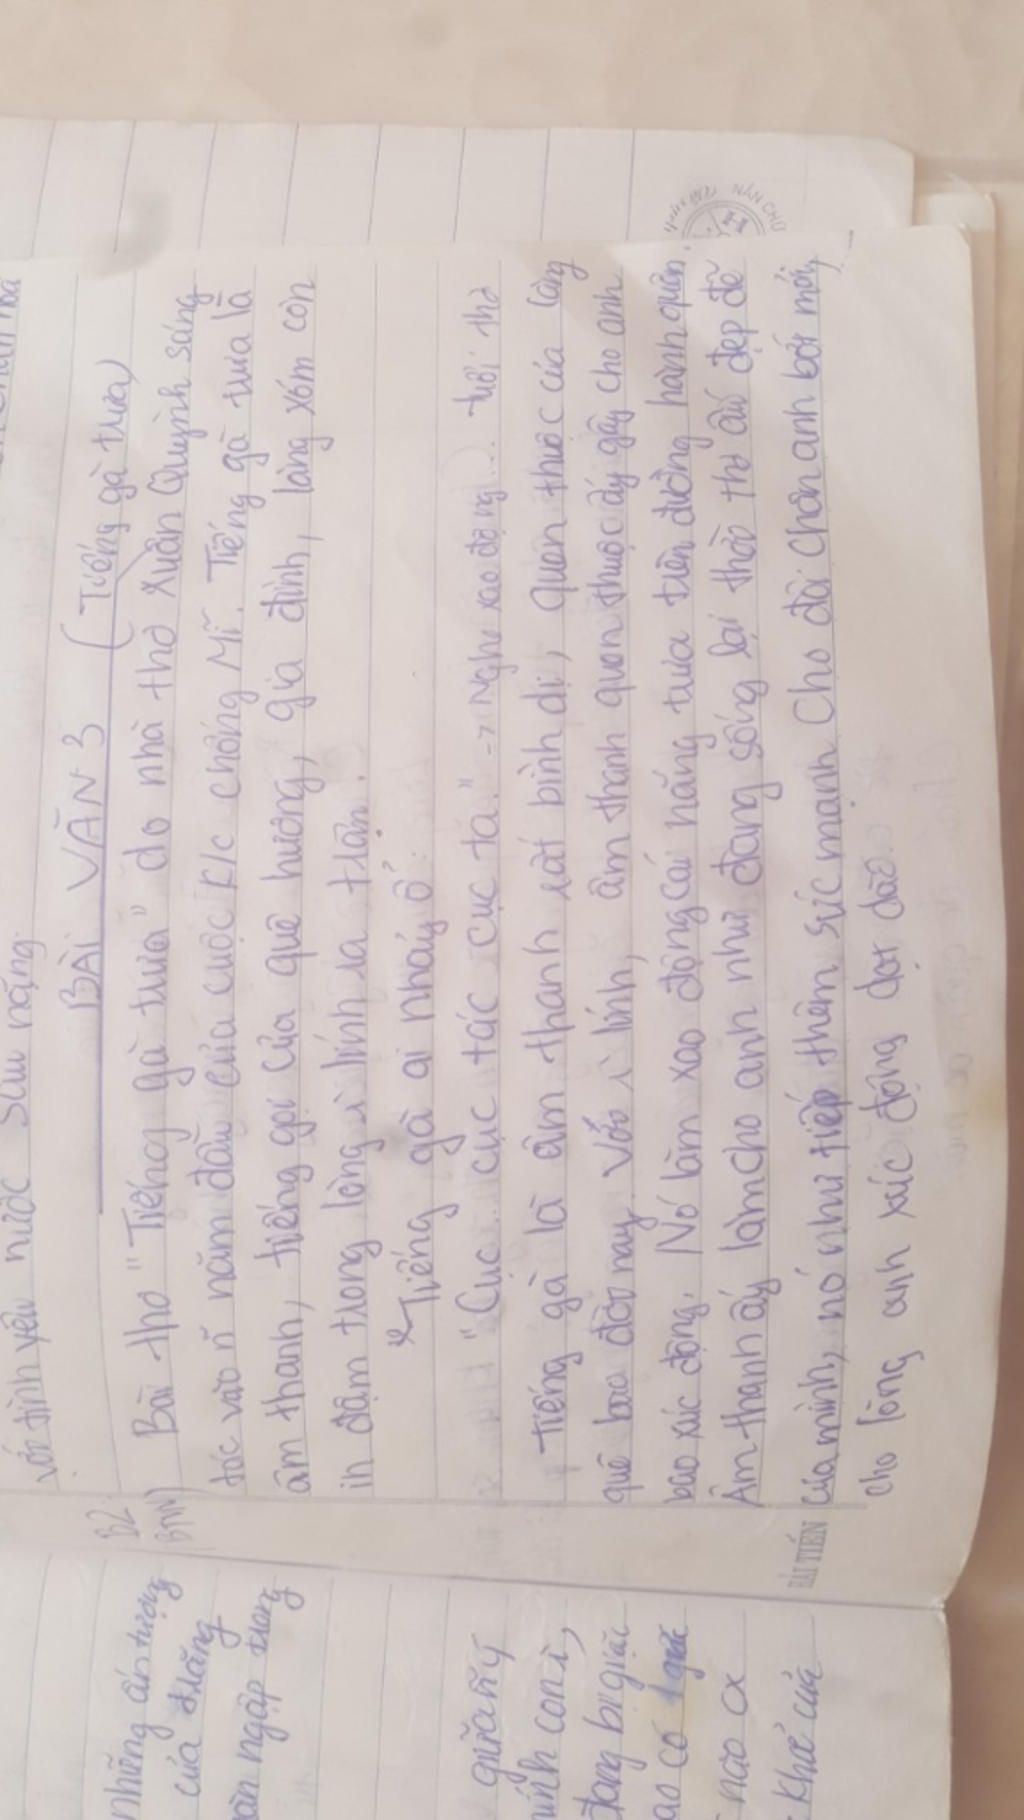 với tình yêu nước sâu nặng.
BÀI VĂN 3 (Tiếng gà trưa)
B2
(BTVN)
Bài thơ "Tiếng gà trưa" do nhà thơ Xuân Quỳnh sáng
tác vào n~ năm đầu của cuộc k/c chống Mĩ. Tiếng gà trưa là
âm thanh, tiếng gọi của quê hương, gia đình, làng xóm còn
in đậm trong lòng lính ra trận.
Tiếng gà ai nhảy ổ:
"Cục... cục tác cục ta." -> Nghe xao động... tuổi thơ
Tiếng gà là âm thanh rất bình dị, quen thuộc của làng
quê bao đời nay. Với lính, âm thanh quen thuộc ấy gây cho anh
bao xúc động. Nó làm xao động cái nắng trưa trên đường hành quân.
Âm thanh ấy làm cho anh như đang sống lại thời thơ ấu đẹp đẽ
của mình, nó như tiếp thêm sức mạnh cho đôi chân anh bớt mỏi,
cho lòng anh xúc động dạt dào.
HẢI TIẾN
những ấn tượng
của trăng
ngập trong
giữa
đang bị giặc
có 1
nào